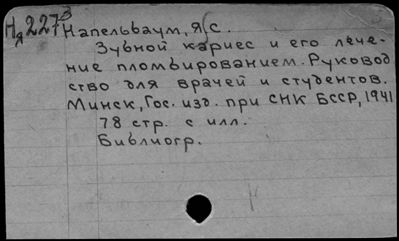 Ня 227³
Капельбаум, Я. С.
Зубной кариес и его лече-
ние пломбированием. Руковод
ство для врачей и студентов.
Минск, Гос. изд. при СНК БССР, 1941
78 стр. с илл.
Библиогр.